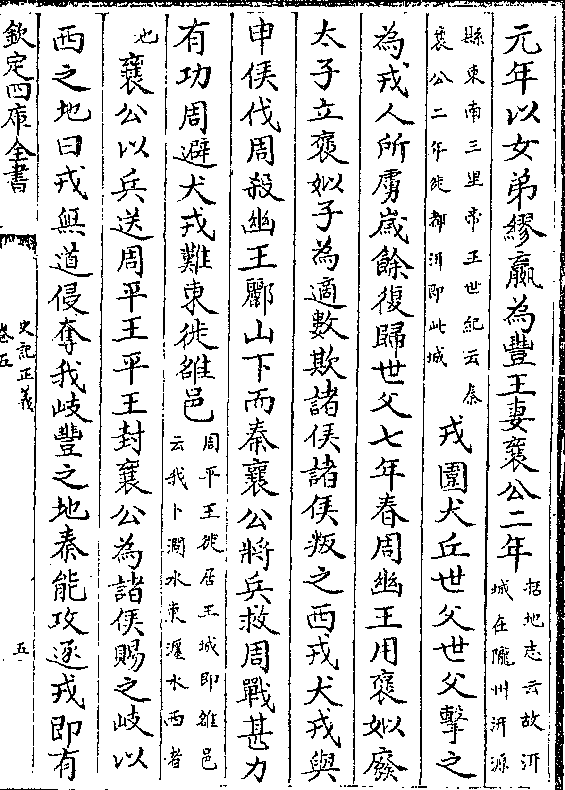 元年以女弟繆嬴為豐王妻襄公二年括地志云故汧城在隴州汧源
縣東南三里帝王世紀云秦襄公二年徙都汧即此城戎圍犬丘世父世父擊之
為戎人所虜歲餘復歸世父七年春周幽王用褒姒廢
太子立褒姒子為適數欺諸侯諸侯叛之西戎犬戎與
申侯伐周殺幽王酈山下而秦襄公將兵救周戰甚力
有功周避犬戎難東徙雒邑周平王徙居王城即雒邑云我卜澗水東瀍水西者
也襄公以兵送周平王平王封襄公為諸侯賜之岐以
西之地曰戎無道侵奪我岐豐之地秦能攻逐戎即有
欽定四庫全書
史記正義
卷五
五